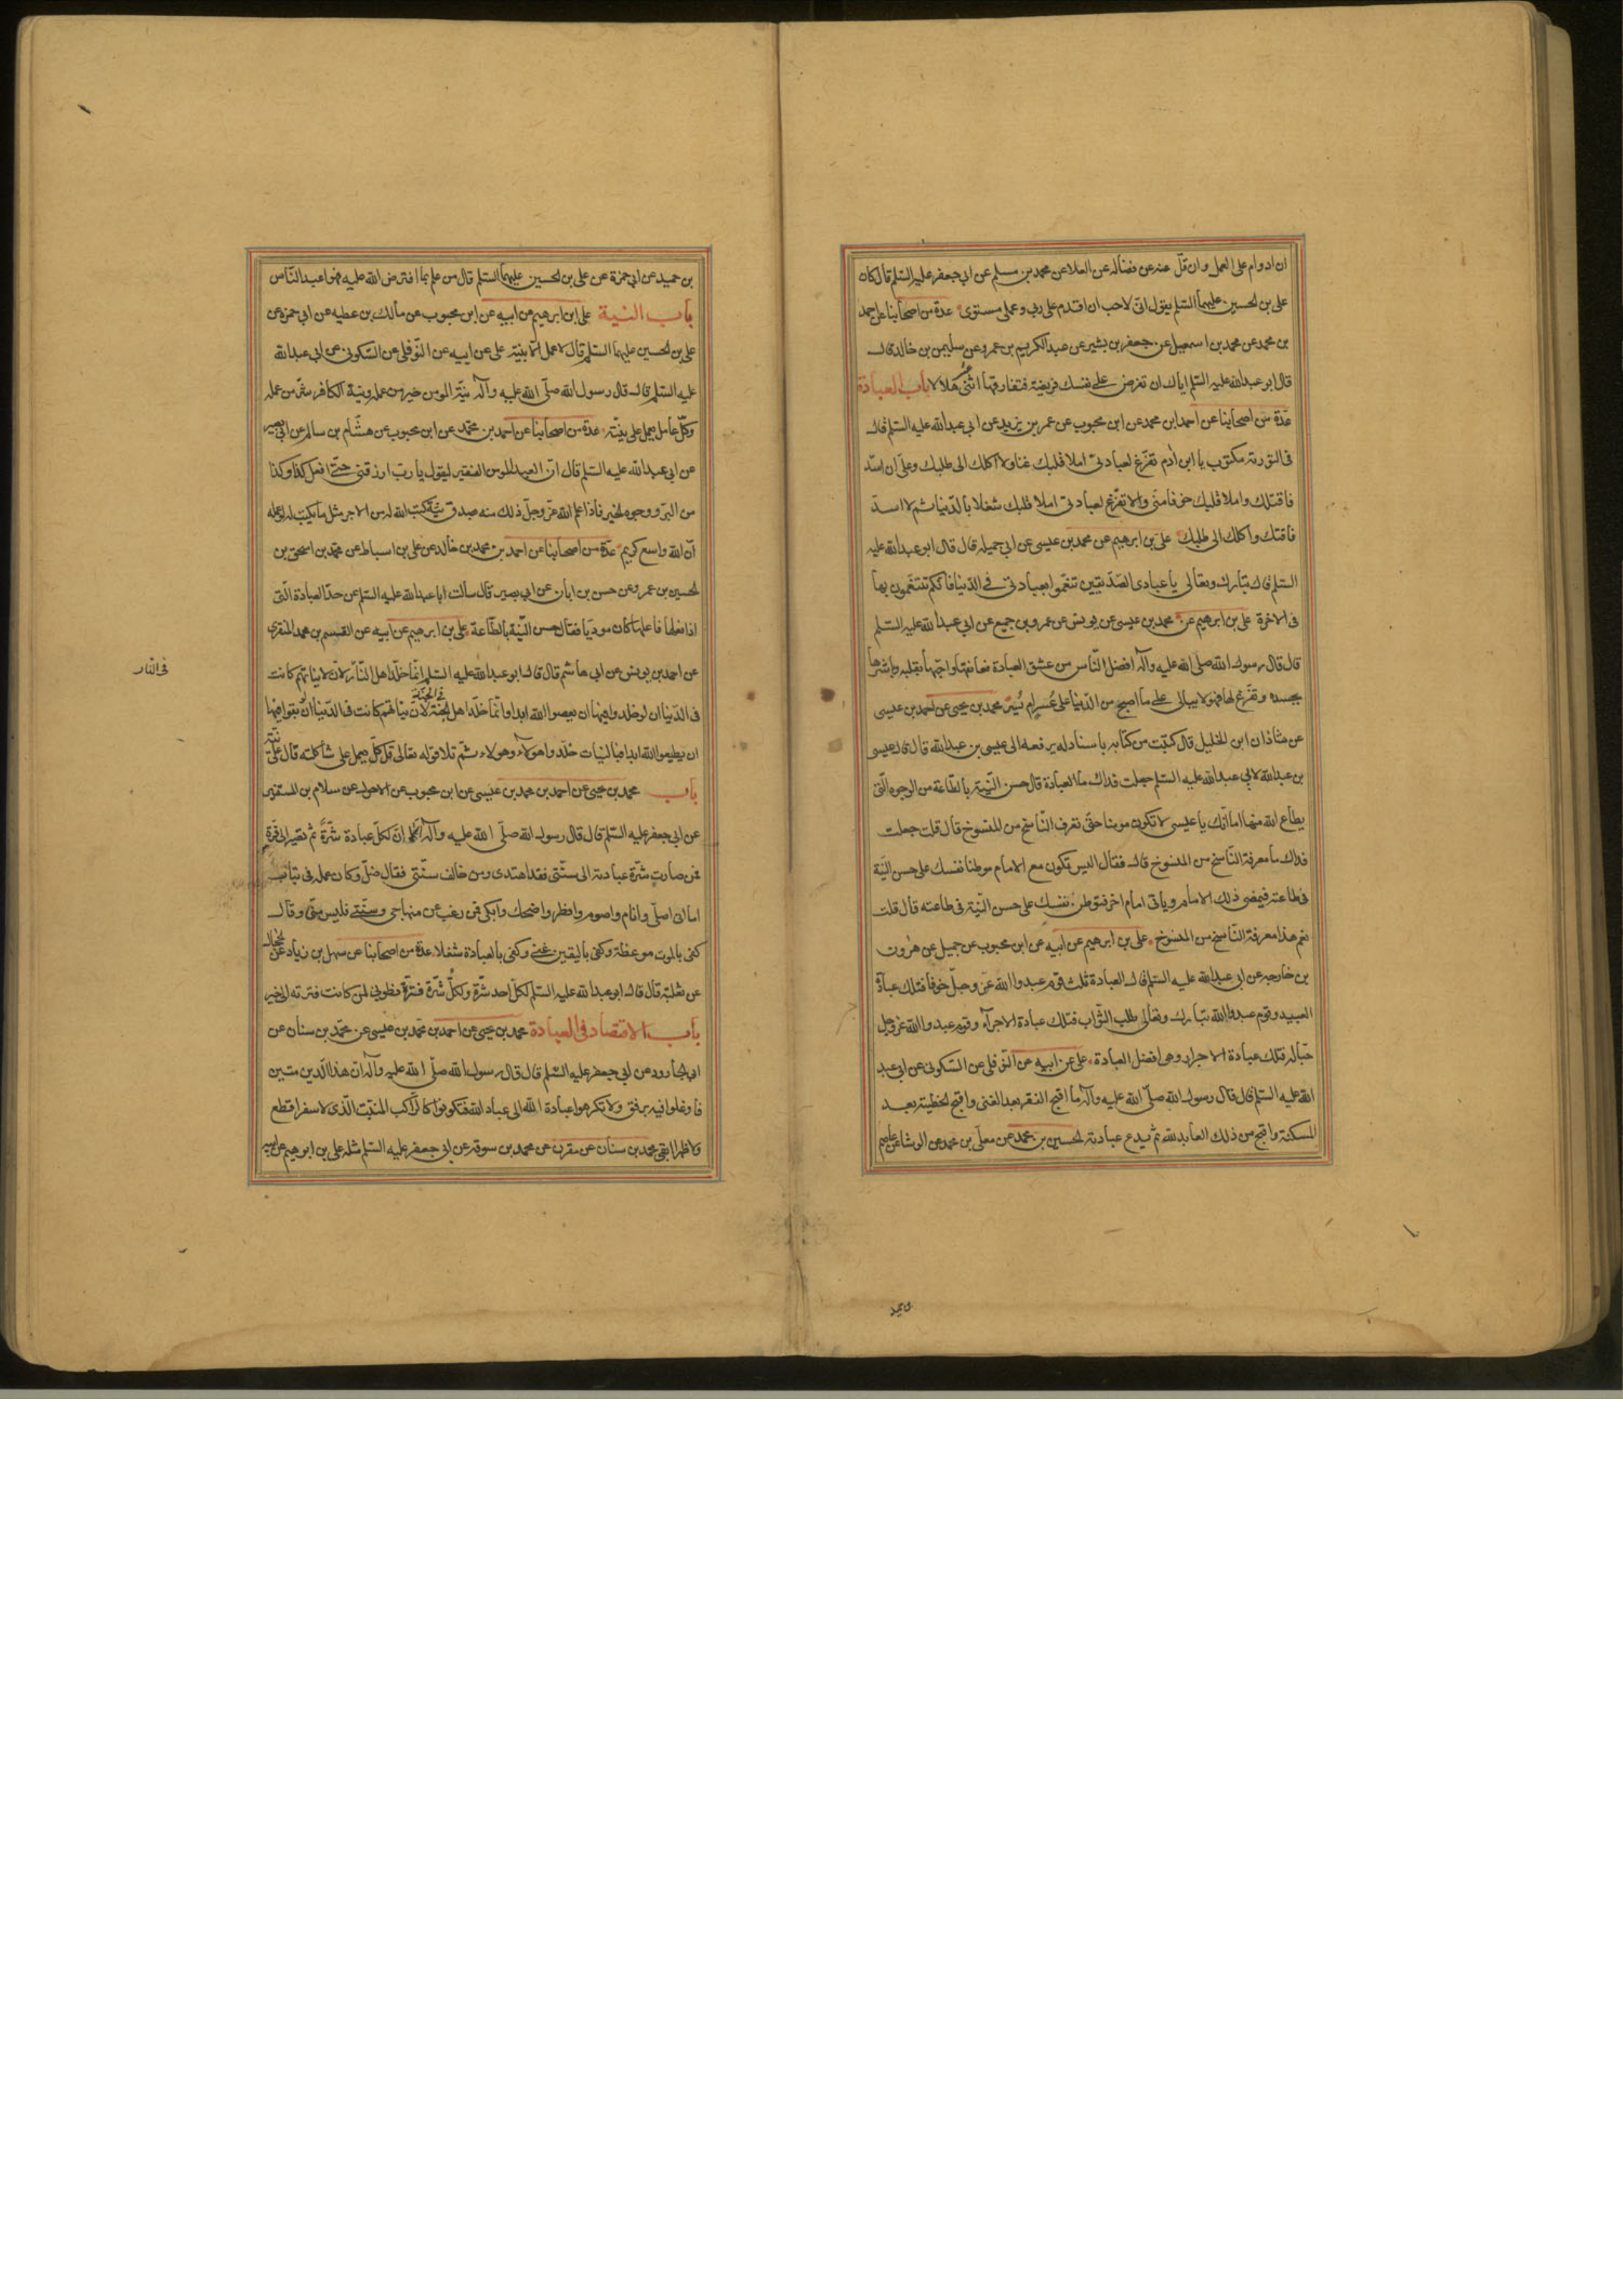 ان ادوام على العمل وان قلّ عنه عن فضاله عن العلا عن محمد بن مسلم عن ابي جعفر عليه السّلم قال كان
على بن لحسين عليهما السّلم يقول انّى لاحب ان اقدم على ربى وعملى مستوى عدة من اصحابنا عن احمد
بن محمد عن محمد بن اسمعيل عن جعفر بن بشير عن عبد الكريم بن عمرو عن سليمن بن خالد قال
قال ابو عبد الله عليه السّلم اياك ان تفرض على نفسك فريضة فتفارقها اثنى عشر هلالا باب العبادة
عدّة من اصحابنا عن احمد ابن محمد عن ابن محبوب عن عمر بن يزيد عن ابى عبد الله عليه السّلم قال
فى التورية مكتوب يا ابن ادم تفرّغ لعبادتى املا قلبك غنا ولا اكلك الى طلبك وعلىّ ان اسدّ
فاقتك واملا قلبك خوفا منّى والا تفرّغ لعبادتى املا قلبك شغلا بالدّنيا ثم لا اسدّ
فاقتك واكلك الى طلبك علىّ بن ابرهيم عن محمد بن عيسى عن ابى جميله قال قال ابو عبد الله عليه
السّلم قال تبارك وتعالى يا عبادى الصّدّيقين تنعّموا بعبادتى فى الدّنيا فانّكم تتنعّمون بها
فى الاخرة على بن ابرهيم عن محمد بن عيسى عن يونس عن عمرو بن جميع عن ابى عبد الله عليه السّلم
قال قال رسول الله صلى الله عليه وآله افضل النّاس من عشق العبادة فعانقها واحبّها بقلبه وباشرها
بجسده وتفرّغ لها فهو لا يبالى على ما اصبح من الدّنيا على عُسرٍ ام يُسرٍ محمد بن يحيى عن احمد بن عيسى
عن شاذان ابن الخليل قال كتبت من كتابه باسناد له يرفعه الى عيسى بن عبد الله قال قال عيسى
بن عبد الله لابى عبد الله عليه السّلم جعلت فداك ما العبادة قال حسن النّيّة بالطّاعة من الوجوه الّتى
يطاع الله منها اما انّك يا عيسى لا تكون مومنا حتّى تعرف النّاسخ من المنسوخ قال قلت جعلت
فداك ما معرفة النّاسخ من المنسوخ قال فقال اليس تكون مع الامام موطنا نفسك على حسن النّيّة
فى طاعته فيمضى ذلك الامام وياتى امام اخر فتوطن نفسك على حسن النّيّة فى طاعته قال قلت
نعم هذا معرفة النّاسخ من المنسوخ على بن ابرهيم عن ابيه عن ابن محبوب عن جميل عن هرون
بن خارجه عن ابى عبد الله عليه السّلم قال العبادة ثلث قوم عبدوا الله عزّ وجلّ خوفا فتلك عبادة
العبيد وقوم عبدوا الله تبارك وتعالى طلب الثّواب فتلك عبادة الاجرآء وقوم عبدوا الله عز وجل
حبّا له فتلك عبادة الاحرار وهى افضل العبادة على عن ابيه عن النّوفلى عن السّكونى عن ابى عبد
الله عليه السّلم قال قال رسول الله صلّى الله عليه وآله ما اقبح الفقر بعد الغنى واقبح الخطيئة بعد
المسكنة واقبح من ذلك العابد لله ثم يدع عبادته لحسين بن محمد عن معلّى بن محمد عن الوشا عن عاصم
بن حميد عن ابى حمزة عن على بن لحسين عليهما السّلم قال من عمل بما افترض الله عليه فهو اعبد النّاس
باب النية على ابن ابرهيم عن ابيه عن ابن محبوب عن مالك بن عطيه عن ابى حمزه عن
على بن لحسين عليهما السّلم قال لا عمل الّا بنيّة على عن ابيه عن النّوفلى عن السّكونى عن ابى عبد الله
عليه السّلم قال قال رسول الله صلّى الله عليه وآله نيّة المومن خير من عمله ونية الكافر شرّ من عمله
وكلّ عامل يعمل على نيّته عدّة من اصحابنا عن احمد بن محمّد عن ابن محبوب عن هشام بن سالم عن ابى بصير
عن ابى عبد الله عليه السّلم قال انّ العبد المومن الفقير ليقول يا ربّ ارزقنى حتّى افعل كذا وكذا
من البرّ ووجوه لخير فاذا علم الله عزّ وجلّ ذلك منه بصدق نيّة كتب الله له من الاجر مثل ما يكتب له لو عمله
انّ الله واسع كريم عدّة من اصحابنا عن احمد بن محمد بن خالد عن على بن اسباط عن محمّد بن اسحق بن
لحسين بن عمرو عن حسن بن ابان عن ابى بصير قال سالت ابا عبد الله عليه السّلم عن حدّ العبادة الّتى
اذا فعلها فاعلها كان مودّيا فقال حسن النّيّة بالطّاعة على بن ابرهيم عن ابيه عن القسم بن محمد المنقرى
عن احمد بن يونس عن ابى هاشم قال قال ابو عبد الله عليه السّلم انّما خلّد اهل النّار لانّ نيّاتهم كانت
فى النّار
فى الدّنيا ان لو خلدوا فيها ان يعصوا الله ابدا وانّما خلّد اهل الجنّة فى الجنّة لانّ نيّاتهم كانت فى الدّنيا ان لو بقوا فيها
ان يطيعوا الله ابدا فبالنيات خلّد هولاء وهولاء ثمّ تلا قوله تعالى قل كلّ يعمل على شاكلته قال على نيّته
باب محمد بن يحيى عن احمد بن محمد بن عيسى عن ابن محبوب عن الاحول عن سلام بن المستنير
عن ابى جعفر عليه السّلم قال قال رسول الله صلّى الله عليه وآله الا انّ لكلّ عبادة شرّة ثم تصير الى فترة
فمن صارت شرّة عبادته الى سنّتى فقد اهتدى ومن خالف سنّتى فقال ضلّ وكان عمله فى تباب
اما انى اصلّى وانام واصوم وافطر واضحك وابكى فمن رغب عن منهاجى وسنّتى فليس منّى وقال
كفى بالموت موعظة وكفى باليقين غنى وكفى بالعبادة شغلا عدّة من اصحابنا عن سهل بن زياد عن الحجال
عن ثعلبة قال قال ابو عبد الله عليه السّلم لكلّ احد شرّة ولكلّ شرّة فترة فطوبى لمن كانت فترته الى خير
باب الاقتصاد فى العبادة محمد بن يحيى عن احمد بن محمد بن عيسى عن محمّد بن سنان عن
ابى لجارود عن ابى جعفر عليه السّلم قال قال رسول الله صلّى الله عليه وآله انّ هذا الدّين متين
فاوغلوا فيه برفق ولا تكرهوا عبادة الله الى عباد الله فتكونوا كالرّاكب المنبتّ الّذى لا سفرا قطع
ولا ظهرا ابقى محمد بن سنان عن مقرن عن محمد بن سوقه عن ابى جعفر عليه السّلم مثله على بن ابرهيم عن ابيه